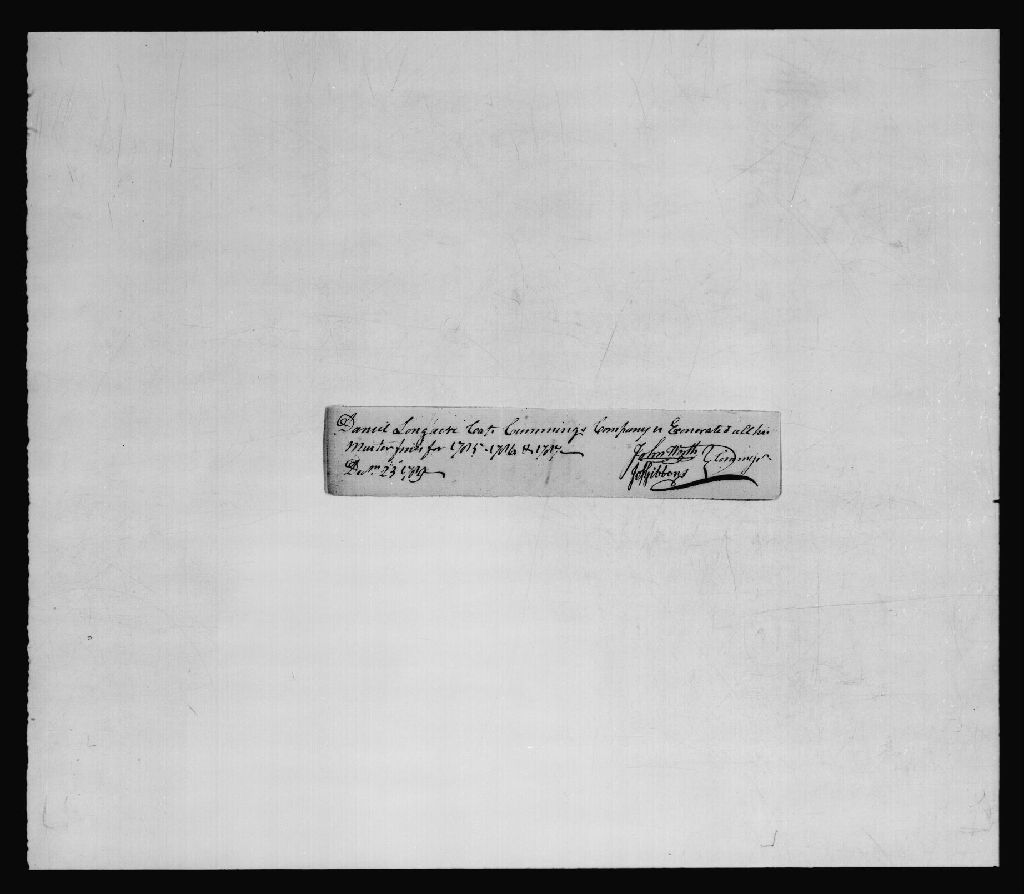 Daniel Longacre Capt Cummings Company is Exonerated all his
Muster fines for 1785-1786 & 1787
Decr 23d 1789
John Wyth
Jos Gibbons